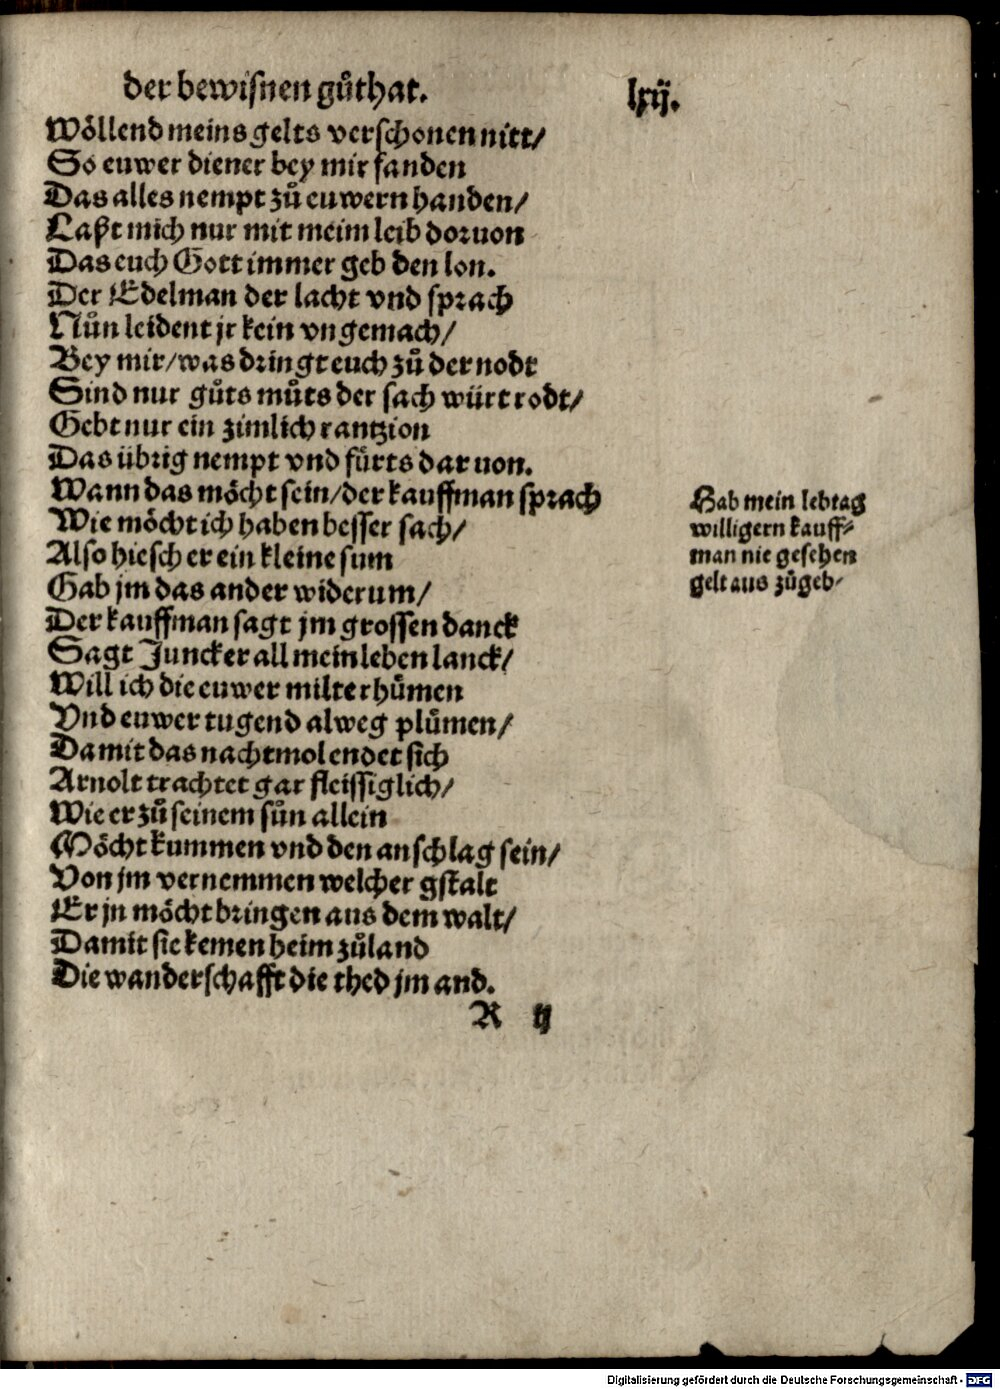 der bewiſnen gůthat. lxij.
Wöllend meins gelts verſchonen nitt/
So euwer diener bey mir fanden
Das alles nempt zů euwern handen/
Laßt mich nur mit meim leib doruon
Das euch Gott immer geb den lon.
Der Edelman der lacht vnd ſprach
Nůn leident jr kein vngemach/
Bey mir/was dringt euch zů der nodt
Sind nur gůts můts der ſach würt rodt/
Gebt nur ein zimlich rantzion
Das übrig nempt vnd fürts daruon.
Wann das möcht ſein/der kauffman ſprach
Wie möcht ich haben beſſer ſach/
Alſo hieſch er ein kleine ſum
Gab jm das ander widerum/
Der kauffman ſagt jm groſſen danck
Sagt Juncker all mein leben lanck/
Will ich die euwer milte rhůmen
Vnd euwer tugend alweg plůmen/
Damit das nachtmol endet ſich
Arnolt trachtet gar fleiſſiglich/
Wie er zů ſeinem ſůn allein
Möcht kummen vnd den anſchlag ſein/
Von jm vernemmen welcher gſtalt
Er jn möcht bringen aus dem walt/
Damit ſie kemen heim zůland
Die wanderſchafft die thed jm and.
Hab mein lebtag
willigern kauff⸗
man nie geſehen
gelt aus zůgeb⸗
R ij
Digitalisierung gefördert durch die Deutsche Forschungsgemeinschaft - DFG